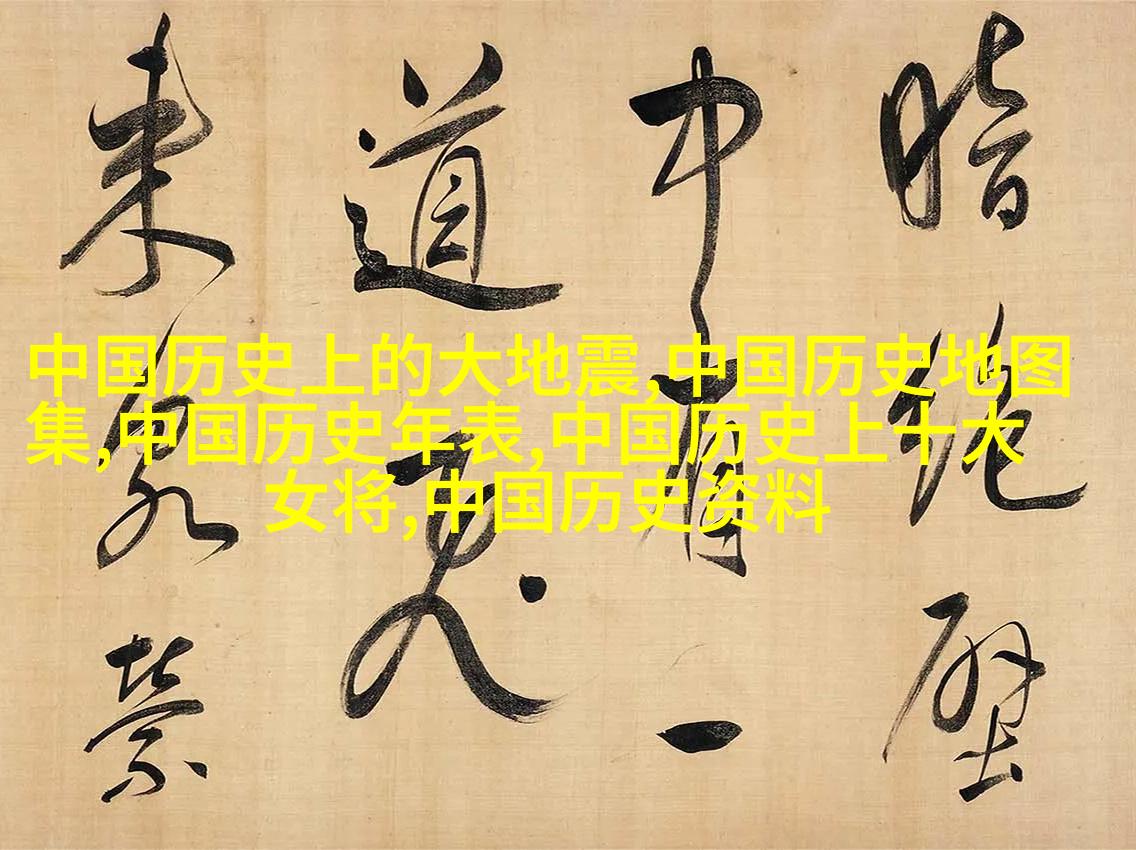 中国历史上的大地震,中国历史地图
集,中国历史年表,中国历史上十大
女将,中国历史资料
暗絕
中有一
道飛
来泉縈